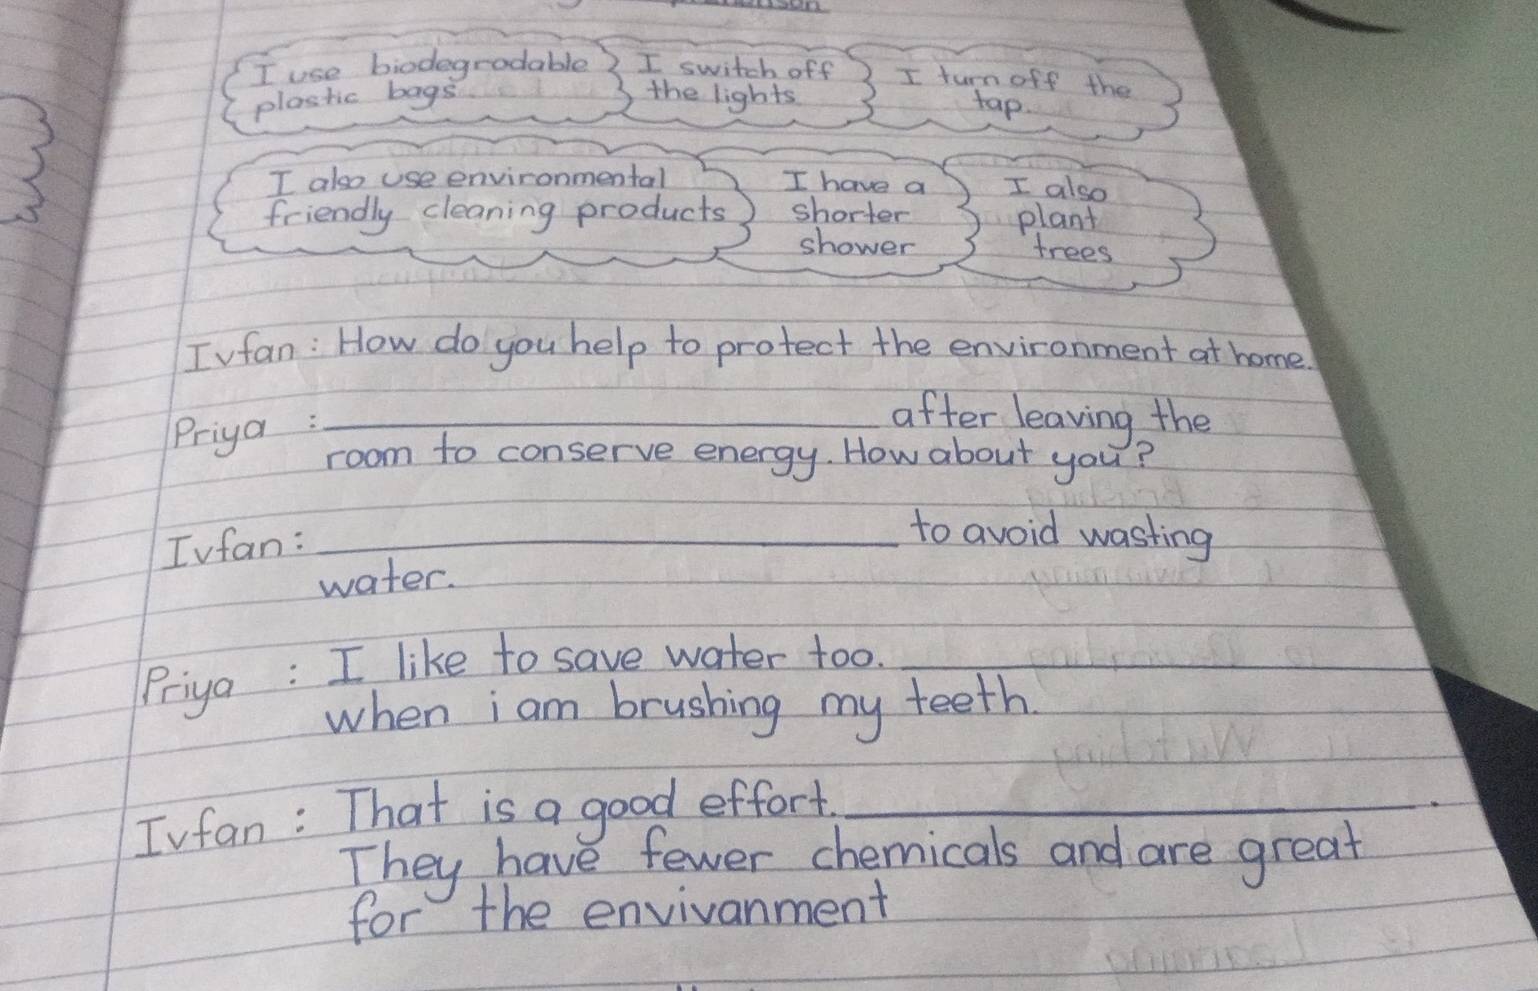 I use biodegradable plastic bags
I switch off the lights
I turn off the tap.
I also use environmental friendly cleaning products
I have a shorter shower
I also plant trees
Ivfan: How do you help to protect the environment at home.
Priya : after leaving the
room to conserve energy. How about you?
Ivfan: to avoid wasting
water.
Priya : I like to save water too.
when i am brushing my teeth.
Ivfan: That is a good effort. .
They have fewer chemicals and are great
for the envivanment